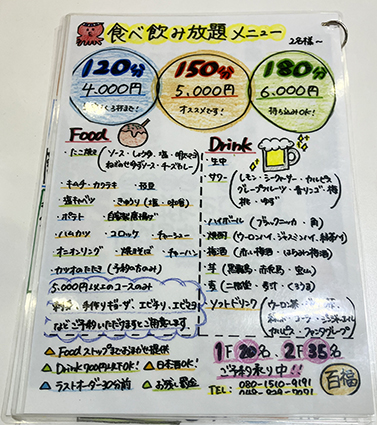 食べ飲み放題メニュー
2名様～
120分
4,000円
150分
5,000円
オススメです!
180分
6,000円
持ち込みOK!
Food
・たこ焼き(ソース・しょうゆ・塩・明太マヨ
ねぎみぞゆずソース・チーズカレー)
・キムチ・カクテキ ・枝豆
・塩キャベツ ・きゅうり(塩・味噌)
・ポテト ・自家製唐揚げ
・ハムカツ ・コロッケ ・チャーシュー
・オニオンリング ・焼きそば ・チャーハン
・カツオのたたき(予約の方のみ)
5,000円以上のコースのみ
手作りギョーザ、エビチリ、エビマヨ
などご予約いただけますとご用意します
▲Foodストップまでおまかせ提供
▲Drink700円以下OK! ▲日本酒OK!
▲ラストオーダー30分前 ▲お残し罰金
Drink
・生中
・サワー(レモン・ミルクティー・カルピス
グレープフルーツ・青リンゴ・梅
桃・ゆず)
・ハイボール(ブラックニッカ・角)
・焼酎(ウーロンハイ、ジャスミンハイ、緑茶ハイ)
・梅酒(赤い梅酒・はちみつ梅酒)
・芋(黒霧島・赤霧島・
・麦(二階堂・
・ソフトドリンク(ウーロン茶・
コーラ・
カルピス・ファンタグレープ)
1F 20名、2F 35名
ご予約承り中!!
TEL: 080-1510-9191
百福